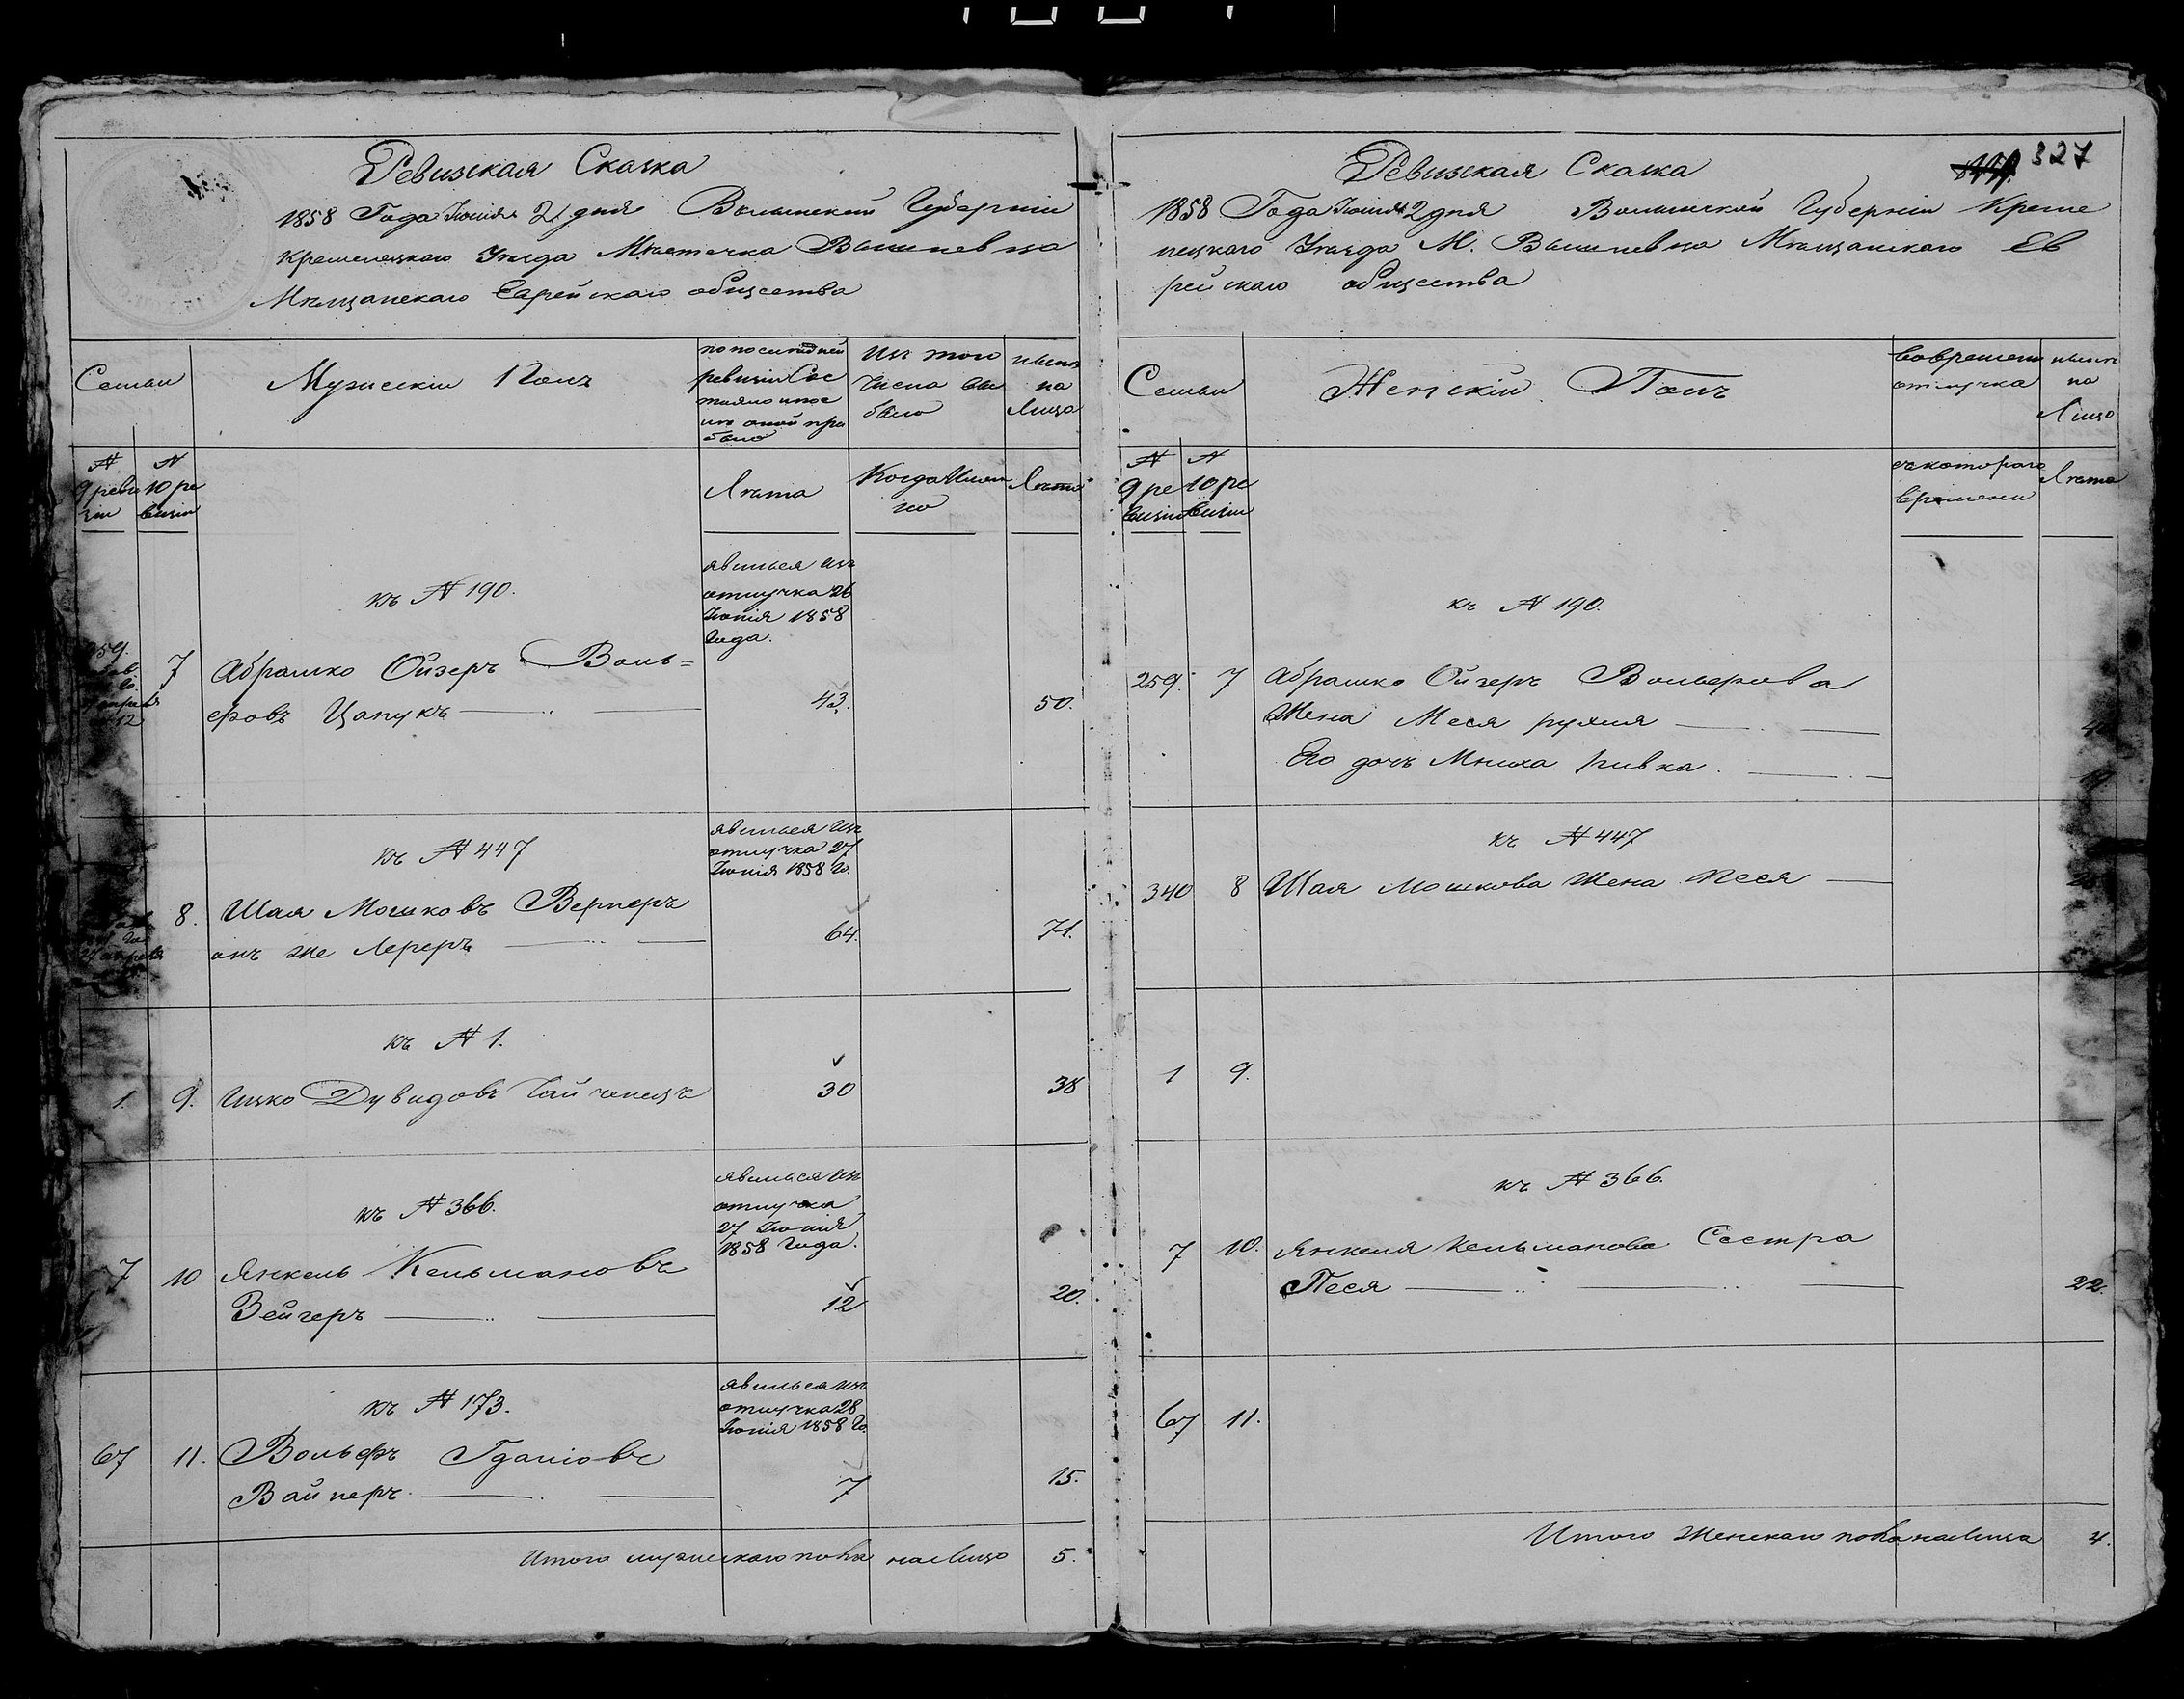 Ревизская Сказка
1858 Года Іюнія 2 дня Волынской Губерніи
Кременецкаго Уѣзда Мѣстечка Вышневца
Мѣщанскаго Еврейскаго общества
Семьи
Мужескій Полъ
по последней
ревизіи Сос
тояло и пос
ле оной при
было
Изъ того
числа вы
было
нынѣ
на
Лицо
№
9 реви
зіи
№
10 ре
визіи
Лѣта
Когда Имен
но
Лѣта
къ № 190.
явился изъ
отлучка 26
Іюнія 1858
Года.
259.
7
Абрашко Ойзеръ Воль=
еровъ Цапукъ
43.
50.
къ № 447
явился изъ
отлучка 27
Іюнія 1858 Го.
8.
Шая Мошковъ Вернеръ
онъ же Лереръ
64.
71.
къ № 1.
1.
9.
Ицко Дувидовъ Гайченецъ
30
38
къ № 366.
явился изъ
отлучка
27 Іюнія
1858 Года.
7
10
Янкель Кельмановъ
Вейгеръ
12
20.
къ № 173.
явился изъ
отлучка 28
Іюнія 1858 Го.
67
11.
Вольфъ Гданіовъ
Вайнеръ
7
15.
Итого мужескаго пола налицо 5.
327
Ревизская Сказка
1858 Года Іюнія 2 дня Волынской Губерніи Креме
нецкаго Уѣзда М. Вышневца Мѣщанскаго Ев
рейскаго общества
Семьи
Женскій Полъ
Вовременн
отлучка
нынѣ
на
Лицо
№
9 ре
визіи
№
10 ре
визіи
съ котораго
времени
Лѣта
къ № 190.
259.
7
Абрашка Ойзеръ Вольерова
Жена Меся рухля
Его дочь Мниха ривка.
къ № 447
340
8
Шая Мошкова Жена Песя
1
9.
къ № 366.
7
10.
Янкеля Кельманова Сестра
Песя
22.
67
11.
Итого Женскаго пола налицо 4.